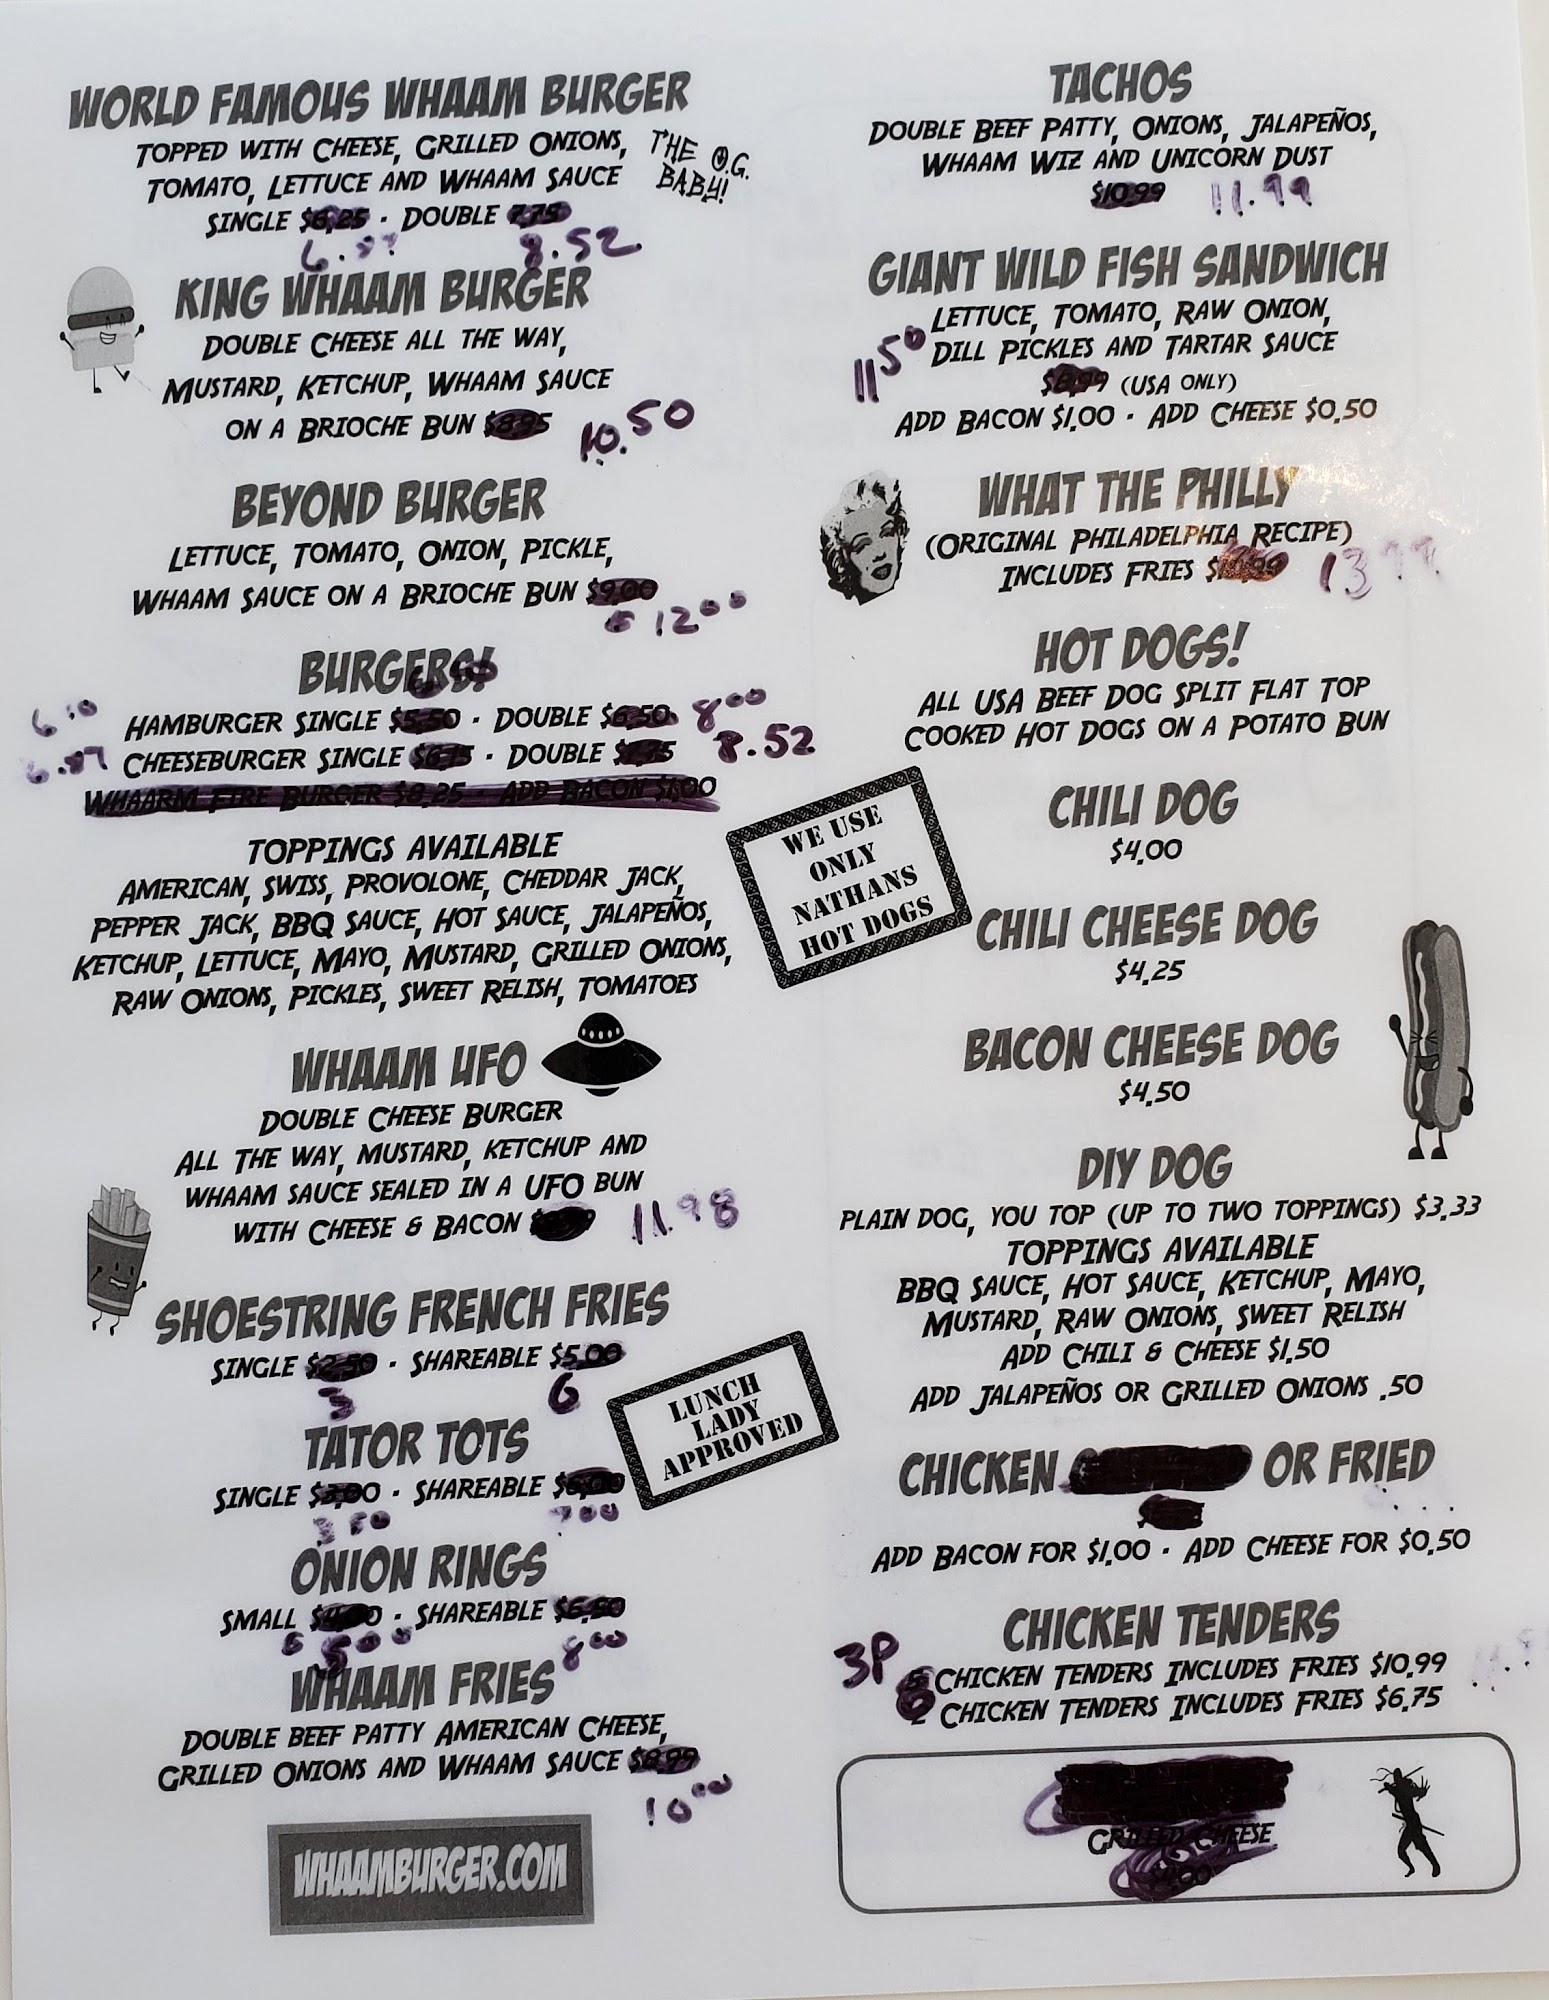 WORLD FAMOUS WHAAM BURGER
TOPPED WITH CHEESE, GRILLED ONIONS,
TOMATO, LETTUCE AND WHAAM SAUCE
THE O.G.
BABY!
SINGLE $6.25 · DOUBLE 7.75
8.52
KING WHAAM BURGER
DOUBLE CHEESE ALL THE WAY,
MUSTARD, KETCHUP, WHAAM SAUCE
ON A BRIOCHE BUN $8.95
10.50
BEYOND BURGER
LETTUCE, TOMATO, ONION, PICKLE,
WHAAM SAUCE ON A BRIOCHE BUN $9.00
12 00
BURGERS!
6.10 HAMBURGER SINGLE $5.50 · DOUBLE $6.50 8 00
CHEESEBURGER SINGLE · DOUBLE 8.52
WHAARM FIRE BURGER $8.25 · ADD BACON $1.00
TOPPINGS AVAILABLE
AMERICAN, SWISS, PROVOLONE, CHEDDAR JACK,
PEPPER JACK, BBQ SAUCE, HOT SAUCE, JALAPEÑOS,
KETCHUP, LETTUCE, MAYO, MUSTARD, GRILLED ONIONS,
RAW ONIONS, PICKLES, SWEET RELISH, TOMATOES
WHAAM UFO
DOUBLE CHEESE BURGER
ALL THE WAY, MUSTARD, KETCHUP AND
WHAAM SAUCE SEALED IN A UFO BUN
WITH CHEESE & BACON 11.98
SHOESTRING FRENCH FRIES
SINGLE $2.50 · SHAREABLE $5.00
3 6
LUNCH
LADY
APPROVED
TATOR TOTS
SINGLE $3.00 · SHAREABLE $6.00
3 50 7 00
ONION RINGS
SMALL · SHAREABLE $6.50
5 00 8 00
WHAAM FRIES
DOUBLE BEEF PATTY AMERICAN CHEESE,
GRILLED ONIONS AND WHAAM SAUCE $8.99
10 00
WHAAMBURGER.COM
TACHOS
DOUBLE BEEF PATTY, ONIONS, JALAPEÑOS,
WHAAM WIZ AND UNICORN DUST
$10.99 11.99
GIANT WILD FISH SANDWICH
LETTUCE, TOMATO, RAW ONION,
11 50 DILL PICKLES AND TARTAR SAUCE
$8.99 (USA ONLY)
ADD BACON $1.00 · ADD CHEESE $0.50
WHAT THE PHILLY
(ORIGINAL PHILADELPHIA RECIPE)
INCLUDES FRIES 13 99
HOT DOGS!
ALL USA BEEF DOG SPLIT FLAT TOP
COOKED HOT DOGS ON A POTATO BUN
WE USE
ONLY
NATHANS
HOT DOGS
CHILI DOG
$4.00
CHILI CHEESE DOG
$4.25
BACON CHEESE DOG
$4.50
DIY DOG
PLAIN DOG, YOU TOP (UP TO TWO TOPPINGS) $3.33
TOPPINGS AVAILABLE
BBQ SAUCE, HOT SAUCE, KETCHUP, MAYO,
MUSTARD, RAW ONIONS, SWEET RELISH
ADD CHILI & CHEESE $1.50
ADD JALAPEÑOS OR GRILLED ONIONS .50
CHICKEN OR FRIED
ADD BACON FOR $1.00 · ADD CHEESE FOR $0.50
CHICKEN TENDERS
3P CHICKEN TENDERS INCLUDES FRIES $10.99
CHICKEN TENDERS INCLUDES FRIES $6.75
GRILLED CHEESE